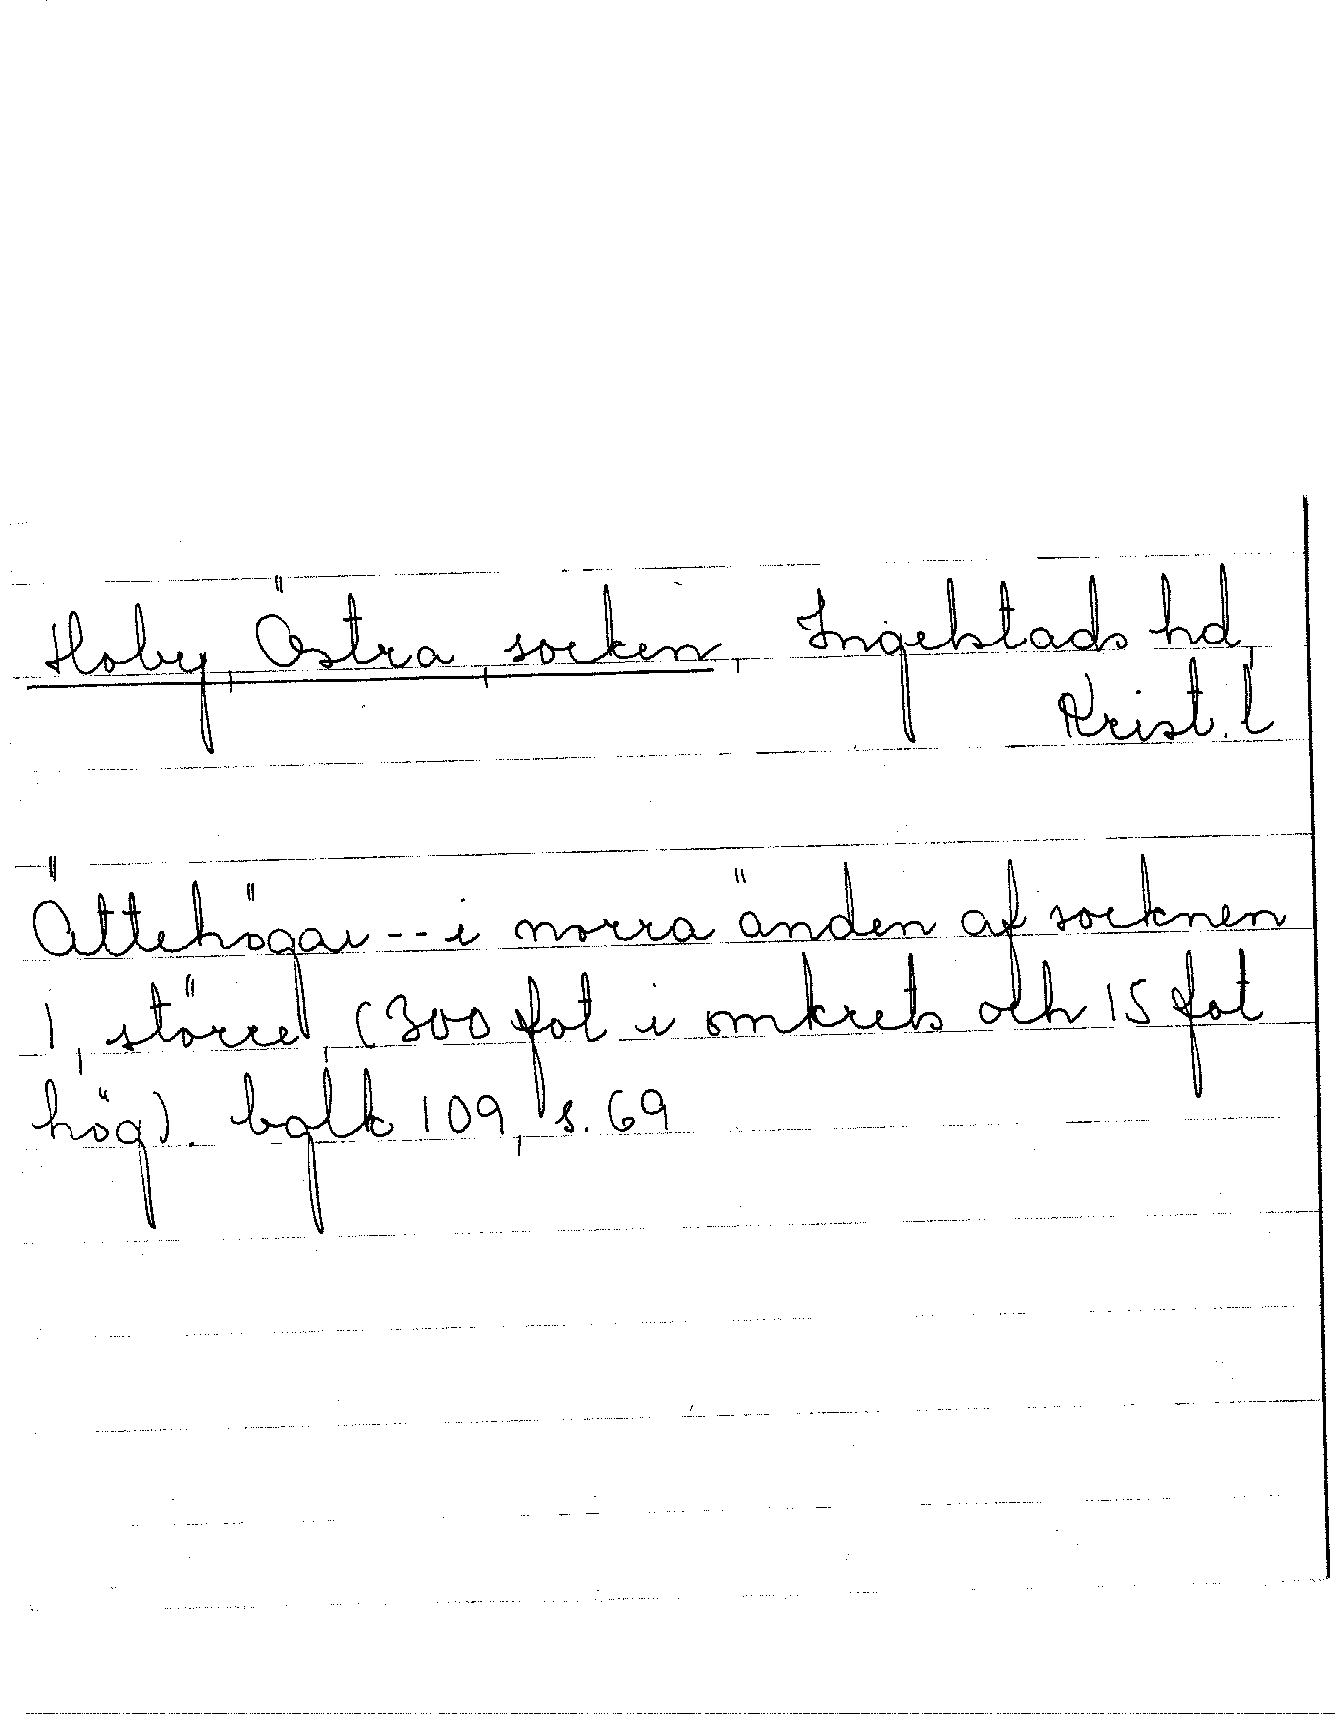 Hoby, Östra, socken, Ingelstads hd,
Krist. l
Ättehögar -- i norra änden af socknen
1, större, (300 fot i omkrets och 15 fot
hög). bglk 109, s. 69